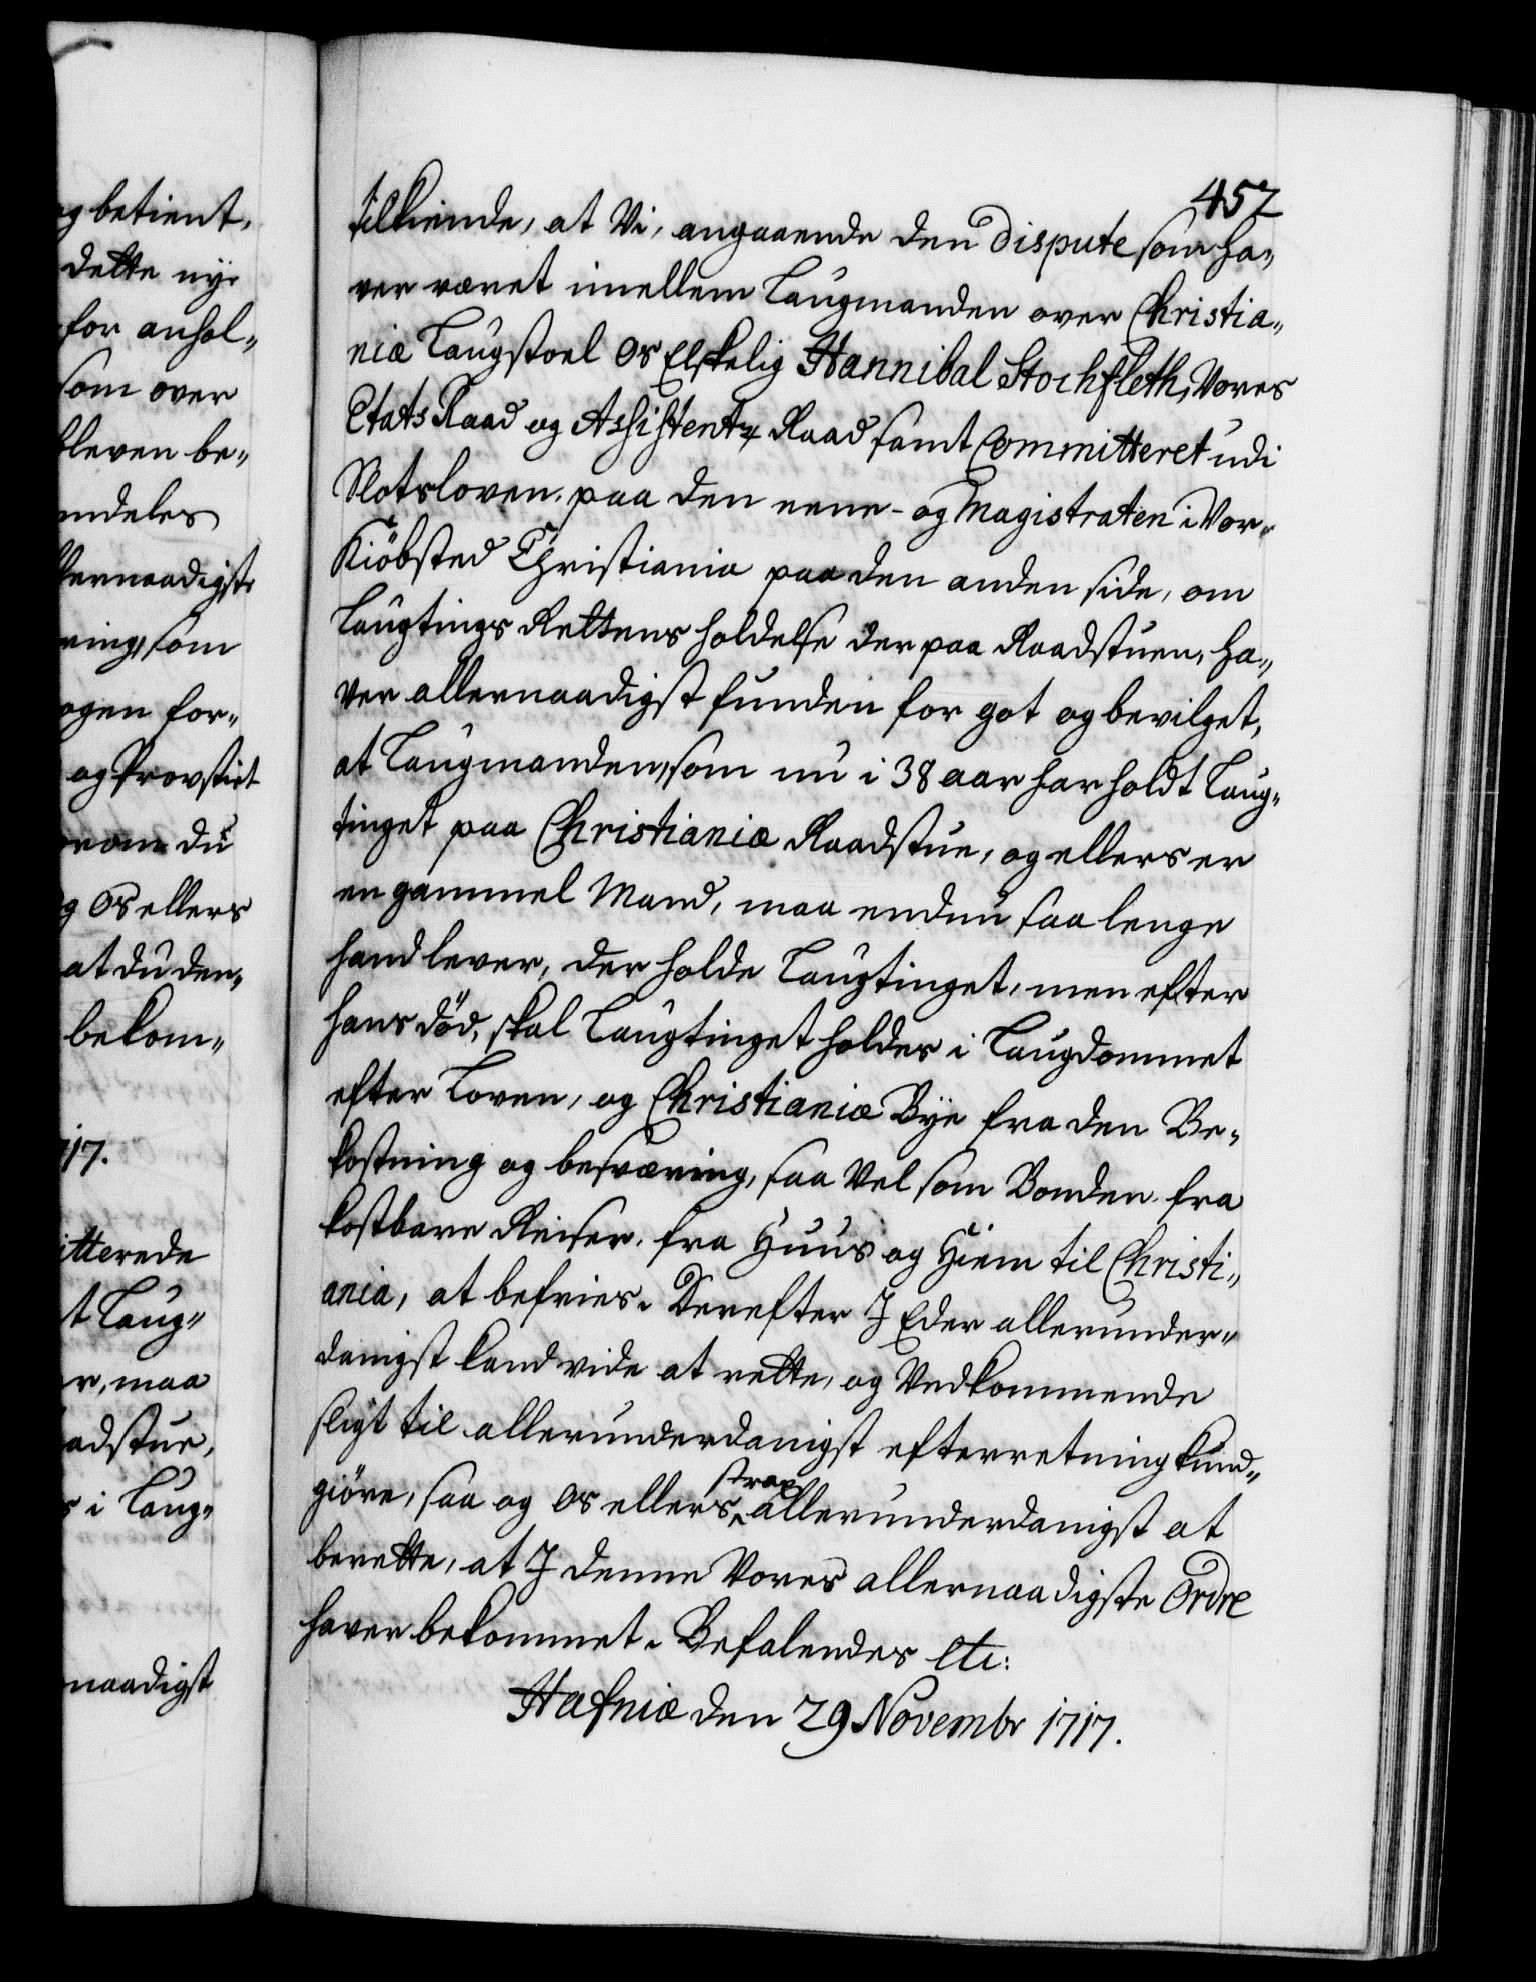 og betient,
dette nye
for anhol-
som over
bleven be-
endeles
lernaadigste
ring, som
ogen for-
og Provstiet
erom du
og Os ellers
at du den-
bekom-
717.
itterede
t Laug-
er, maa
adstue,
s i Laug-
naadigst
457
tilkiende, at Vi, angaaende den dispute som ha-
ver været imellem Laugmanden over Christia-
niæ Laugstoel Os Elskelig Hannibal Stochfleth, Vores
Etats Raad og Assistentz Raad samt Committeret udi
Slotsloven paa den eene- og Magistraten i Vor
Kiöbsted Christiania paa den anden side, om
Laugtings Rettens holdelse der paa Raadstuen, ha-
ver allernaadigst funden for got og bevilget,
at Laugmanden, som nu i 38 aar har holdt Laug-
tinget paa Christianiæ Raadstue, og ellers er
en gammel Mand, maa endnu saa lenge
hand lever, der holde Laugtinget, men efter
hans död, skal Laugtinget holdes i Laugdommet
efter Loven, og Christianiæ Bye fra den Be-
kostning og besværing, saa Vel som Bonden fra
kostbare Reiser fra Huus og Hiem til Christi-
ania, at befries. Derefter I Eder allerunder-
danigst kand vide at rette, og Vedkommende
sligt til allerunderdanigst efterretning kund-
giöre, saa og Os ellers strax allerunderdanigst at
berette, at I denne Vores allernaadigste Ordre
haver bekommet. Befalendes etc:
Hafniæ den 29 Novembr 1717.